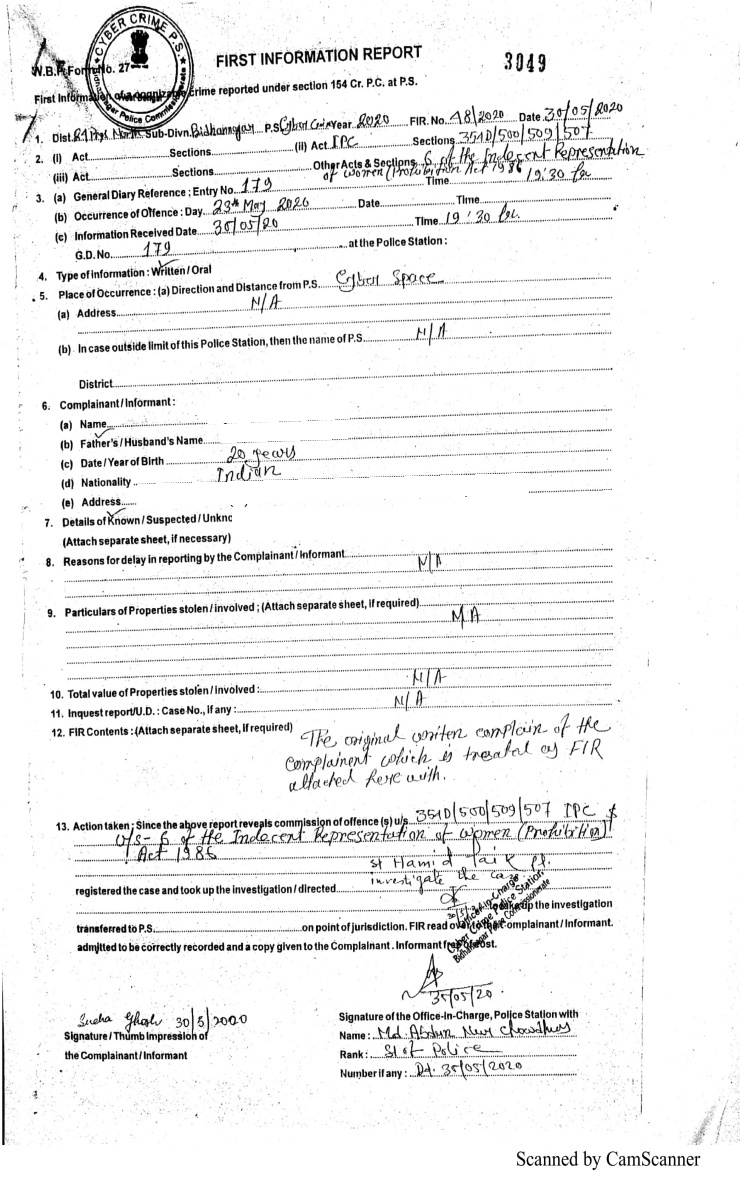 CYBER CRIME P.S.
Bidhannagar Police Commissionerate
W.B.P. Form No. 27
FIRST INFORMATION REPORT
3049
First Information of a cognizable crime reported under section 154 Cr. P.C. at P.S.
1. Dist. Sub-Divn. Bidhannagar P.S. Cyber Crime Year 2020 FIR. No. 48/2020 Date 30/05/2020
2. (I) Act Sections (II) Act IPC Sections 354D/500/509/507
(III) Act Sections Other Acts & Sections 6 of the Indecent Representation
of women (Prohibition) Act 1986
3. (a) General Diary Reference ; Entry No. 179 Time 19:30 hrs
(b) Occurrence of Offence : Day 23th May 2020 Date Time
(c) Information Received Date 30/05/20 Time 19:30 hrs.
G.D. No. 179 at the Police Station :
4. Type of information : Written / Oral
5. Place of Occurrence : (a) Direction and Distance from P.S. Cyber Space
(a) Address N/A
(b) In case outside limit of this Police Station, then the name of P.S. N/A
District
6. Complainant / Informant :
(a) Name
(b) Father's / Husband's Name
(c) Date / Year of Birth 20 years
(d) Nationality Indian
(e) Address
7. Details of Known / Suspected / Unknc
(Attach separate sheet, if necessary)
8. Reasons for delay in reporting by the Complainant / Informant N/A
9. Particulars of Properties stolen / involved ; (Attach separate sheet, if required)
N/A
10. Total value of Properties stolen / Involved : N/A
11. Inquest report/U.D. : Case No., if any : N/A
12. FIR Contents : (Attach separate sheet, if required) The original writen complain of the
complainent which is treated as FIR
attached here with.
13. Action taken ; Since the above report reveals commission of offence (s) u/s 354D/500/509/507 IPC &
U/s- 6 of the Indecent Representation of women (Prohibition)
Act 1986
SI Hamid
investigate the case
registered the case and took up the investigation / directed
30/5/20
Officer-in-Charge
Cyber Crime Police Station
Bidhannagar Police Commissionerate
to take up the investigation
transferred to P.S. on point of jurisdiction. FIR read over to the Complainant / Informant.
admitted to be correctly recorded and a copy given to the Complainant . Informant free of cost.
30/05/20.
Sneha Ghosh 30/5/2020
Signature / Thumb impression of
the Complainant / Informant
Signature of the Office-In-Charge, Police Station with
Name : Md. Abdun Nur Chowdhury
Rank : SI of Police
Number if any : Dt. 30/05/2020
Scanned by CamScanner